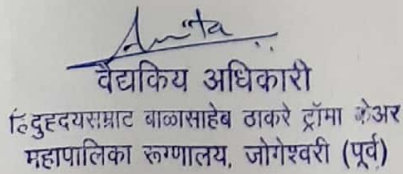 Anita
वैद्यकिय अधिकारी
हिंदुहृदयसम्राट बाळासाहेब ठाकरे ट्रॉमा केअर
महापालिका रुग्णालय, जोगेश्वरी (पूर्व)